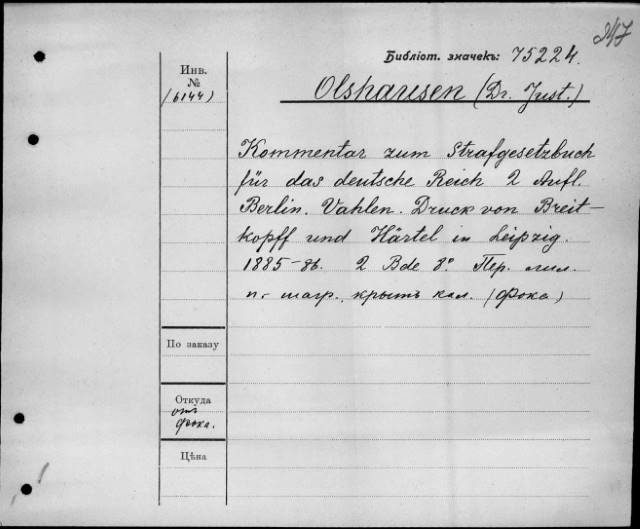 Библіот. значекъ: 75224.
Инв.
№
(6144)
Olshausen (Dr. Just.)
Kommentar zum Strafgesetzbuch
für das deutsche Reich 2 Aufl.
Berlin. Vahlen. Druck von Breit-
kopff und Härtel in Leipzig.
1885-86. 2 Bde 8º. Пер. лил.
п.- шагр., крыт кал. (Фока)
По заказу
Откуда
отъ
Фока.
Цѣна